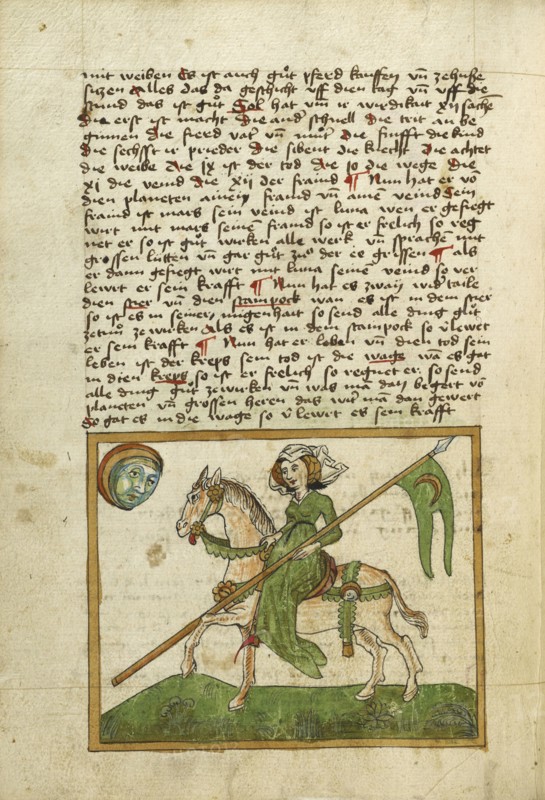 mit weiben Es ist auch gůt pferd kauffen vn̄ zehuße
sitzen Alles das da geschicht vff dien tag vn̄ vff die
stund das ist gůt Sol hat vm̄ ir wirdikait xij sachē
Die erst ist macht Die and schnell die trit an be
ginnen die fierd vat vn̄ můt Die funfft die kind
Die sechsst ir prieder Die sibent die knecht Die achtet
die weibe Die ix ist der tod Die io die wege Die
xi die veind Die xii der fraind ¶ Nun hat er vō
dien planeten ainen fraind vn̄ ainē veind Sein
fraind ist mars sein veind ist luna wen er gesiegt
wirt mit mars seinē fraind so ist er frelich so reg
net er so ist gůt wirken alle werk vn̄ sprachen mit
grossen lutten vn̄ gar gůt zuͦ der ee grissen ¶ als
er dann gesiegt wirt mit luna seinē veind so ver
leurt er sein krafft ¶ Nun hat es zwaÿ wid taile
dien stier vn̄ dien stainpock wan es ist in dem stier
so ist es in seiner mugenhait so send alle ding gůt
zewirken Als es ist in dem stainpock so v̄lewrt
er sein krafft ¶ Nun hat er leben vn̄ dien tod sein
leben ist der kreps sein tod ist die wage wā es gat
in dien kreps so ist er frelich so regnet er so send
alle ding gůt zewirken vn̄ was mā dan begert vō
planeten vn̄ grossen heren das wirt mā dan gewert
So gat es in die wage so v̄lewrt es sein krafft